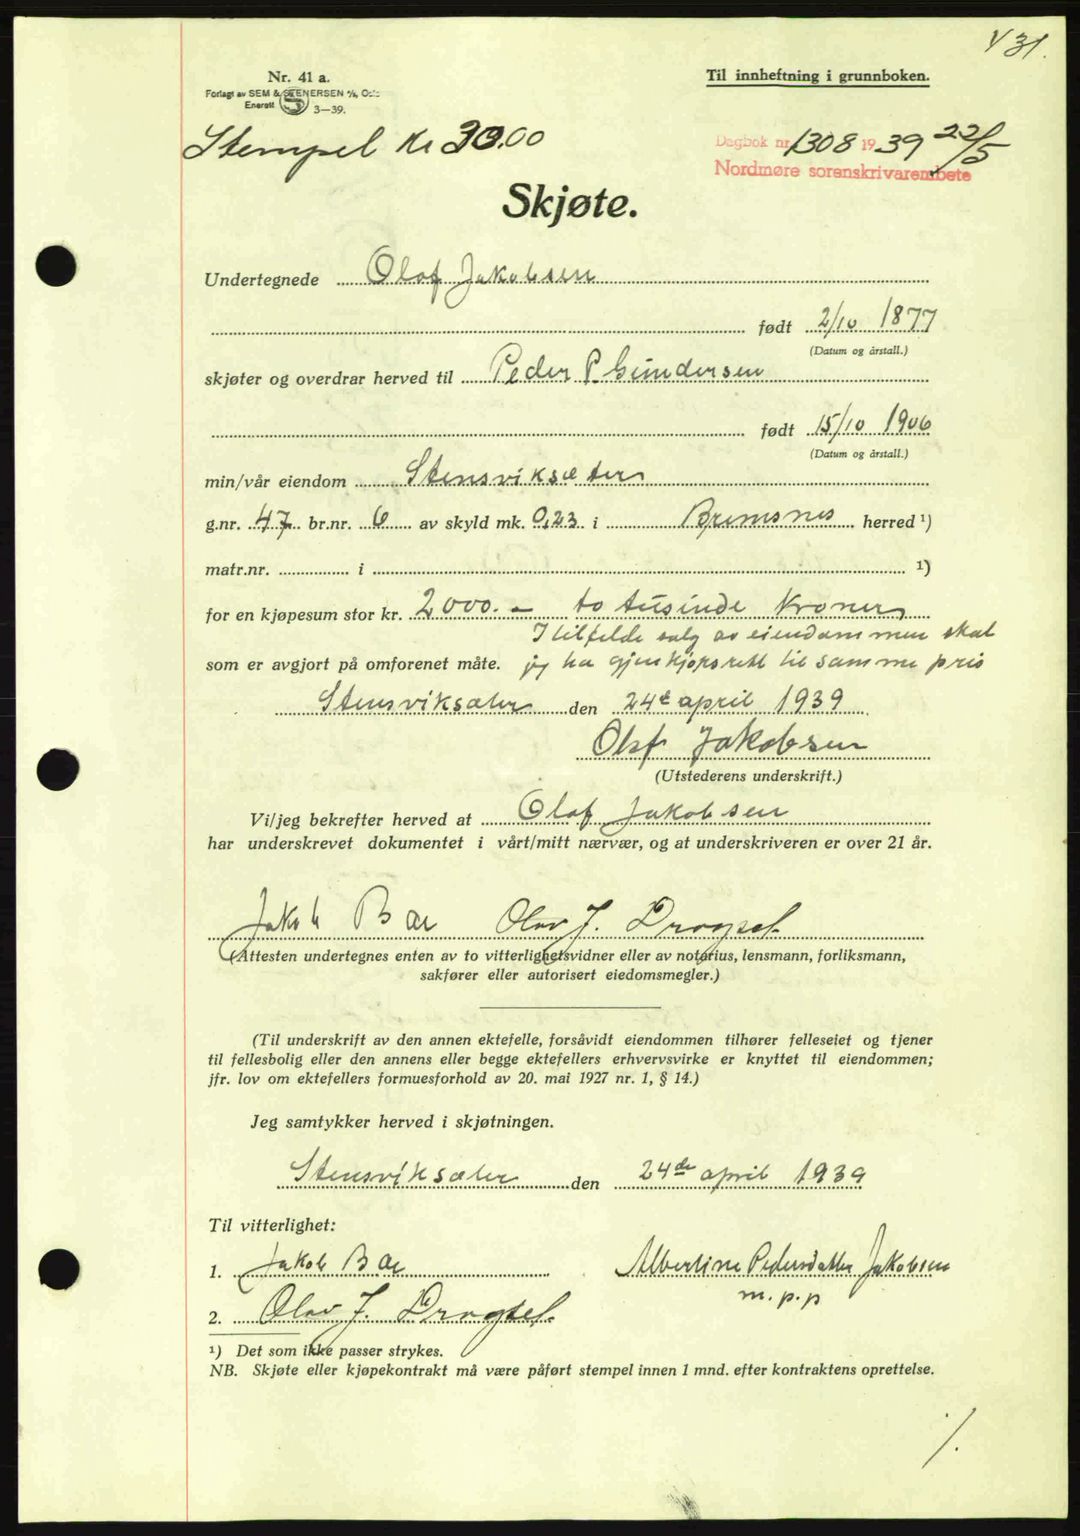 431.
Nr. 41 a.
Til innheftning i grunnboken.
Forlagt av SEM & STENERSEN A/S, Oslo
Enerett
3—39.
Stempel kr 30.00
Dagbok nr. 1308 1939 22/5
Nordmøre sorenskrivarembete
Skjøte.
Undertegnede Olaf Jakobsen
født 2/10 1877
(Datum og årstall.)
skjøter og overdrar herved til Peder P. Gundersen
født 15/10 1906
(Datum og årstall.)
min/vår eiendom Stensviksæter
g.nr. 47 br.nr. 6 av skyld mk. 0,23 i Bremsnes herred ¹)
matr.nr. i ¹)
for en kjøpesum stor kr. 2000.- to tusinde kroner,
I tilfelde salg av eiendommen skal
som er avgjort på omforenet måte. jeg ha gjenkjøpsrett til samme pris
Stensviksæter den 24de april 1939
Olaf Jakobsen
(Utstederens underskrift.)
Vi/jeg bekrefter herved at Olaf Jakobsen
har underskrevet dokumentet i vårt/mitt nærvær, og at underskriveren er over 21 år.
Jakob Bae Olav J. Drogset
(Attesten undertegnes enten av to vitterlighetsvidner eller av notarius, lensmann, forliksmann,
sakfører eller autorisert eiedomsmegler.)
(Til underskrift av den annen ektefelle, forsåvidt eiendommen tilhører felleseiet og tjener
til fellesbolig eller den annens eller begge ektefellers erhvervsvirke er knyttet til eiendommen;
jfr. lov om ektefellers formuesforhold av 20. mai 1927 nr. 1, § 14.)
Jeg samtykker herved i skjøtningen.
Stensviksæter den 24de april 1939
Til vitterlighet:
1. Jakob Bae
Albertine Pedersdatter Jakobsen
m.p.p
2. Olav J. Drogset
¹) Det som ikke passer strykes.
NB. Skjøte eller kjøpekontrakt må være påført stempel innen 1 mnd. efter kontraktens oprettelse.